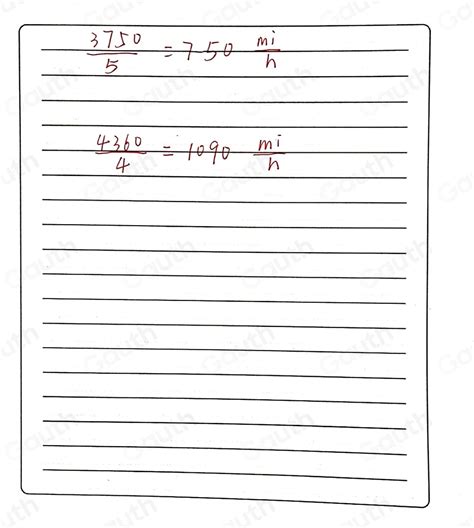 3750/5 = 750 mi/h
4360/4 = 1090 mi/h
Gauth